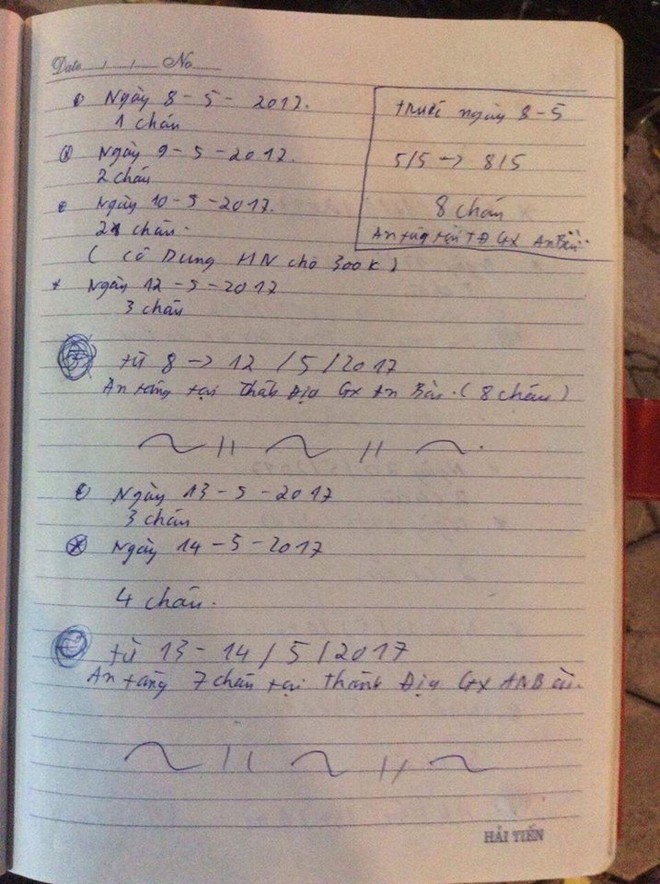 Date / / No
Ngày 8 - 5 - 2017.
1 cháu
Ngày 9 - 5 - 2017.
2 cháu
Ngày 10 - 5 - 2017.
2 cháu.
( Cô Dung HN cho 300K )
* Ngày 12 - 5 - 2017
3 cháu
trước ngày 8 - 5
5/5 -> 8/5
8 cháu
An táng tại TĐ Gx An Bài
từ 8 -> 12 / 5 / 2017
An táng tại Thánh Địa Gx An Bài. ( 8 cháu )
Ngày 13 - 5 - 2017
3 cháu
Ngày 14 - 5 - 2017
4 cháu.
từ 13 - 14 / 5 / 2017
An táng 7 cháu tại Thánh Địa Gx AN Bài.
HẢI TIẾN